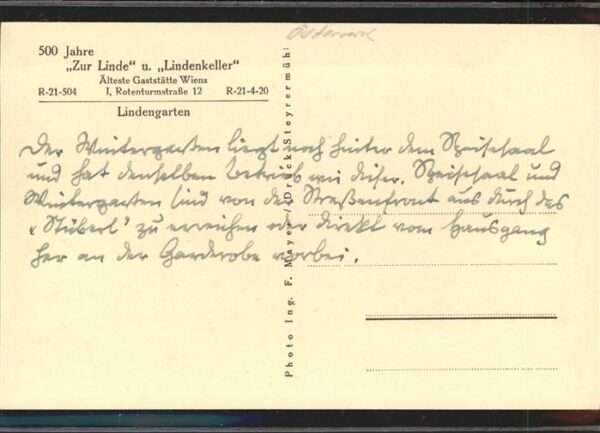 Österreich
500 Jahre
„Zur Linde" u. „Lindenkeller"
Älteste Gaststätte Wiens
R-21-504 I, Rotenturmstraße 12 R-21-4-20
Lindengarten
Der Wintergarten liegt noch hinter dem Speisesaal
und hat denselben Betrieb wie dieser. Speisesaal und
Wintergarten sind von der Straßenfront aus durch das
„Stüberl" zu erreichen oder direkt vom Hausgang
her an der Garderobe vorbei.
Photo Ing. F. Mayer / Druck Steyrermühl